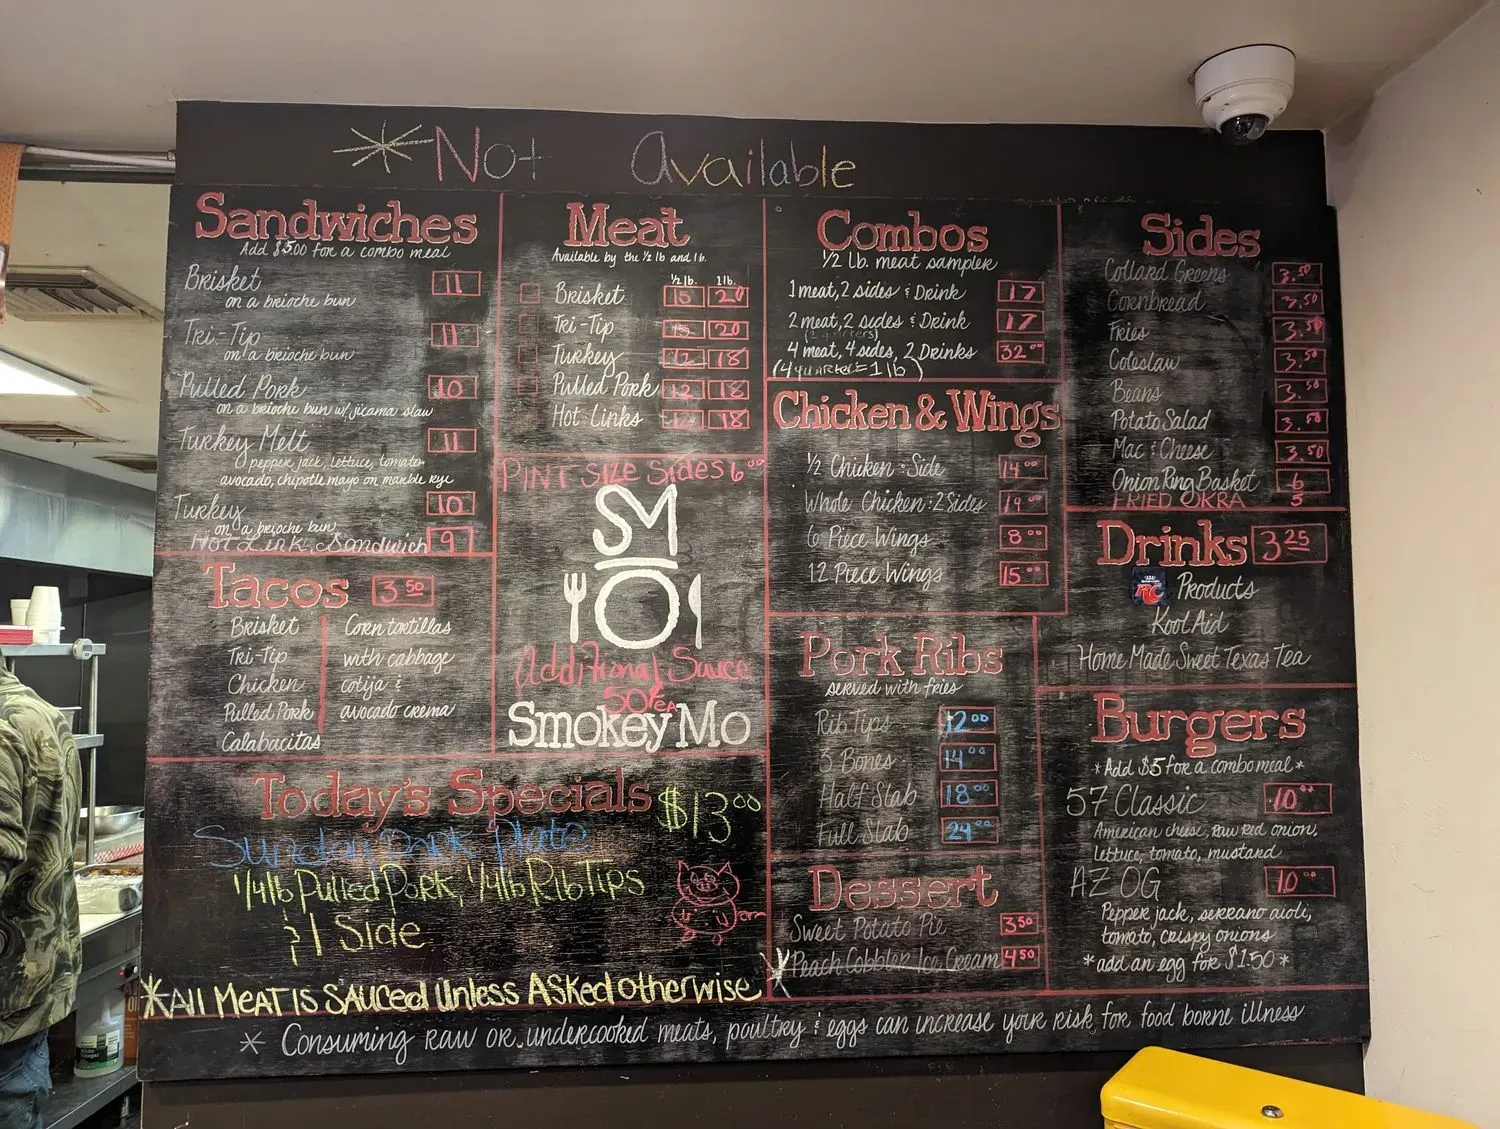 *Not Available
Sandwiches
Add $5.00 for a combo meal
Brisket 11
on a brioche bun
Tri-Tip 11
on a brioche bun
Pulled Pork 10
on a brioche bun w/ jicama slaw
Turkey Melt 11
pepper jack, lettuce, tomato
avocado, chipotle mayo on marble rye
Turkey 10
on a brioche bun
Hot Link Sandwich 9
Tacos 3.50
Brisket
Tri-Tip
Chicken
Pulled Pork
Calabacitas
Corn tortillas
with cabbage
cotija &
avocado crema
Meat
Available by the ½ lb and lb.
½ lb. 1 lb.
Brisket 15 20
Tri-Tip 15 20
Turkey 12 18
Pulled Pork 12 18
Hot Links 18
PINT SIZE SIDES 6.00
SM
O
Additional Sauce
50¢ EA
Smokey Mo
Combos
½ lb. meat sampler
1 meat, 2 sides & Drink 17
2 meat, 2 sides & Drink 17
4 meat, 4 sides, 2 Drinks 32.00
(4 quarter = 1 lb)
Chicken & Wings
½ Chicken & Side 14.00
Whole Chicken & 2 Sides 19.00
6 Piece Wings 8.00
12 Piece Wings 15.00
Pork Ribs
served with fries
Rib Tips 12.00
3 Bones 14.00
Half Slab 18.00
Full Slab 24.00
Dessert
Sweet Potato Pie 3.50
*Peach Cobbler Ice Cream 4.50
Sides
Collard Greens 3.50
Cornbread 3.50
Fries 3.50
Coleslaw 3.50
Beans 3.50
Potato Salad 3.50
Mac & Cheese 3.50
Onion Ring Basket 6
FRIED OKRA 5
Drinks 3.25
RC Products
Kool Aid
Home Made Sweet Texas Tea
Burgers
*Add $5 for a combo meal*
57 Classic 10.00
American cheese, raw red onion,
lettuce, tomato, mustard
AZ OG 10.00
Pepper jack, serrano aioli,
tomato, crispy onions
*add an egg for $1.50*
Today's Specials $13.00
Sunday Pork Plate
1/4 lb Pulled Pork, 1/4 lb Rib Tips
& 1 Side
*All MEAT IS SAUCED Unless ASKED otherwise
* Consuming raw or undercooked meats, poultry & eggs can increase your risk for food borne illness